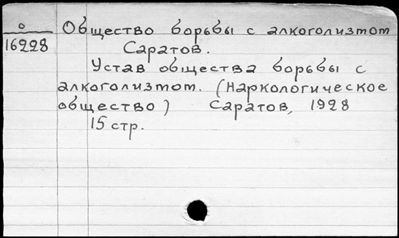 О
16228
Общество борьбы с алкоголизмом
Саратов.
Устав общества борьбы с
алкоголизмом. (Наркологическое
общество) Саратов, 1928
15 стр.